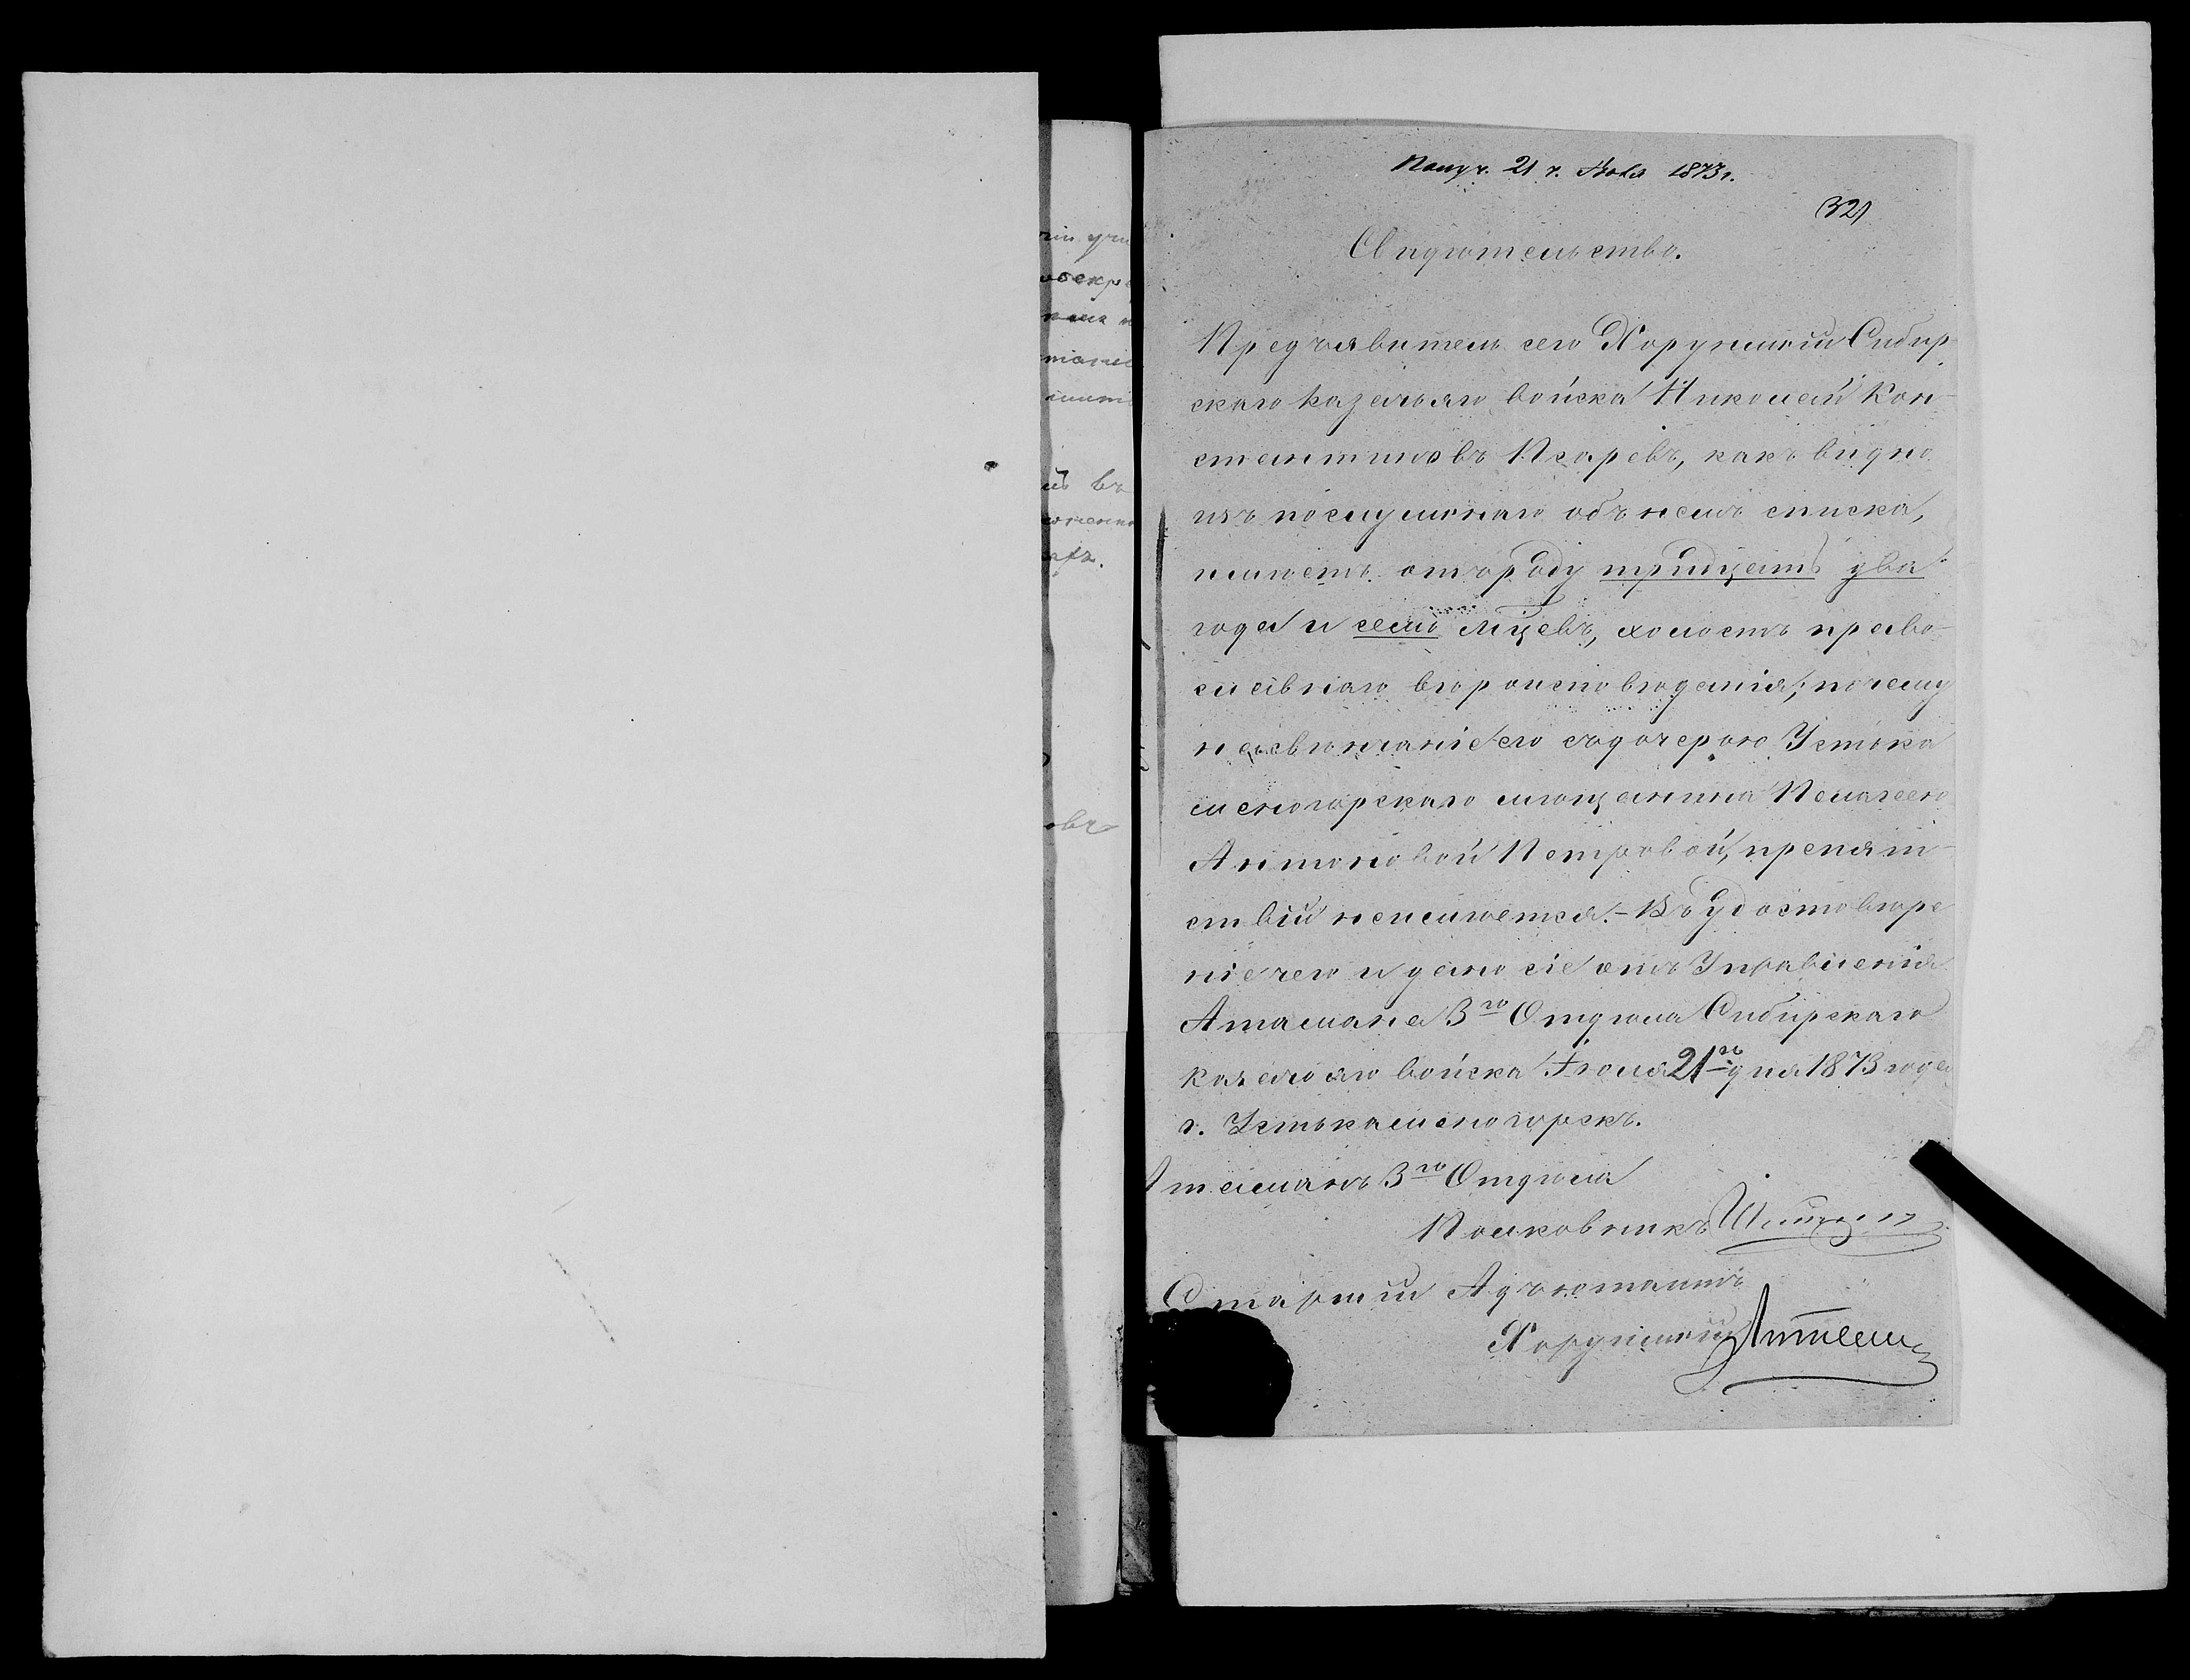 Получ. 21 г. Іюля 1873 г.
32
Свидѣтельство.
Предъявитель сего Хорунжій Сибир
скаго казачьяго войска Николай Кон
стантиновъ Псаревъ, какъ видно
изъ послужнаго объ немъ списка,
имѣетъ отъ роду тридцать два
года и семь мцевъ, холостъ право-
славнаго вѣроисповѣданія; почему
на повѣнчаніе его съ дочерью Устька
меногорскаго мѣщанина Пелагеею
Антоновой Петровой, препят-
ствій неимѣется. - Въ удостовѣре
ніе чего и дано сіе отъ Управленія
Атамана 3го Отдѣла Сибирскаго
казачьяго войска Іюля 21го дня 1873 года
г. Устькаменогорскъ.
Атаманъ 3го Отдѣла
Полковникъ
Старшій Адъютантъ
Хорунжій
въ